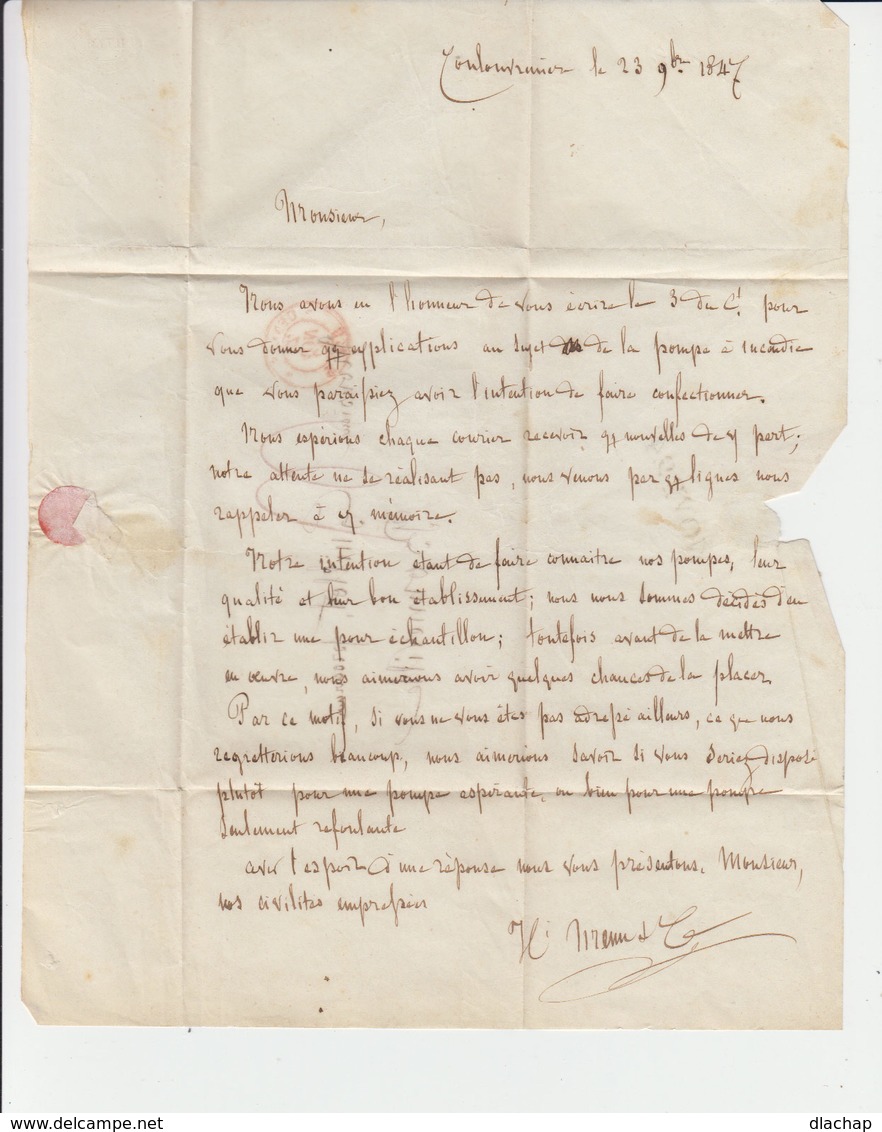 Coulouvrenier le 23 9bre 1847
Monsieur,
Nous avons eu l'honneur de vous écrire le 3 du Ct. pour
vous donner qq explications au sujet de la pompe à incendie
que vous paraissiez avoir l'intention de faire confectionner.
Nous espérions chaque courier recevoir qq nouvelles de v/ part;
notre attente ne se réalisant pas, nous venons par qq lignes nous
rappeler à v/ mémoire.
Notre intention étant de faire connaitre nos pompes, leur
qualité et leur bon établissement; nous nous sommes décidés d'en
établir une pour échantillon; toutefois avant de la mettre
en oeuvre, nous aimerions avoir quelques chances de la placer.
Par ce motif, si vous ne vous êtes pas adressé ailleurs, ce que nous
regretterions beaucoup, nous aimerions savoir si vous seriez disposé
plutôt pour une pompe aspirante, ou bien pour une pompe
seulement refoulante
avec l'espoir d'une réponse nous vous présentons, Monsieur,
nos civilités empressées
Hi Menu & Cie
dlachap